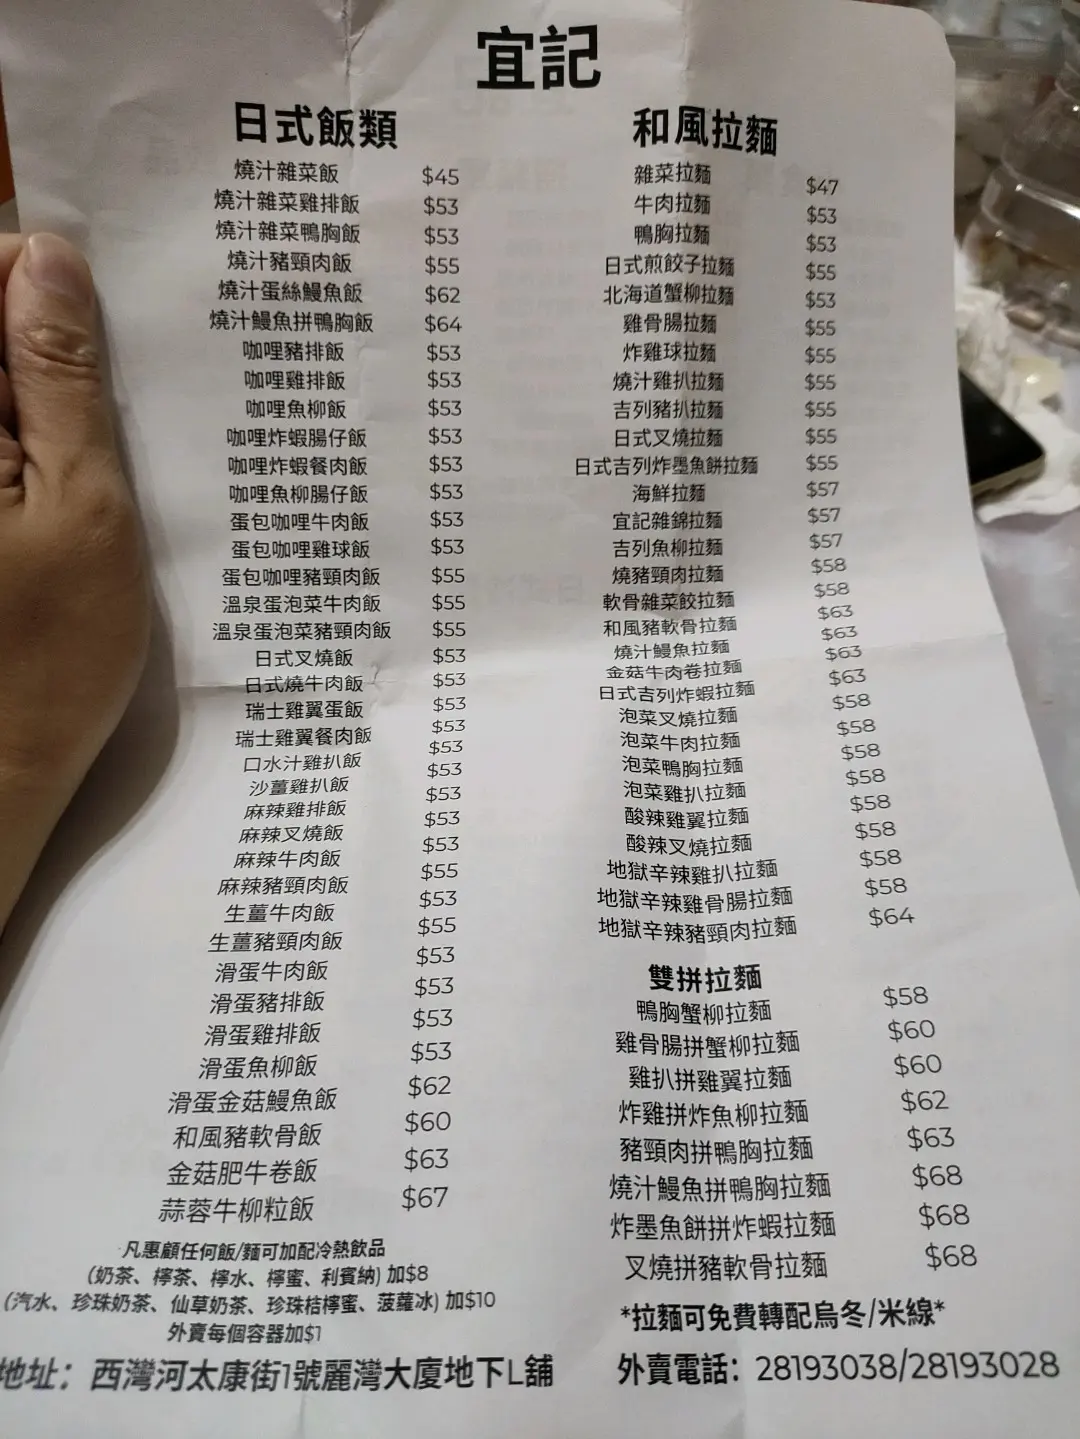 宜記
日式飯類
燒汁雜菜飯 $45
燒汁雜菜雞排飯 $53
燒汁雜菜鴨胸飯 $53
燒汁豬頸肉飯 $55
燒汁蛋絲鰻魚飯 $62
燒汁鰻魚拼鴨胸飯 $64
咖哩豬排飯 $53
咖哩雞排飯 $53
咖哩魚柳飯 $53
咖哩炸蝦腸仔飯 $53
咖哩炸蝦餐肉飯 $53
咖哩魚柳腸仔飯 $53
蛋包咖哩牛肉飯 $53
蛋包咖哩雞球飯 $53
蛋包咖哩豬頸肉飯 $55
溫泉蛋泡菜牛肉飯 $55
溫泉蛋泡菜豬頸肉飯 $55
日式叉燒飯 $53
日式燒牛肉飯 $53
瑞士雞翼蛋飯 $53
瑞士雞翼餐肉飯 $53
口水汁雞扒飯 $53
沙薑雞扒飯 $53
麻辣雞排飯 $53
麻辣叉燒飯 $53
麻辣牛肉飯 $53
麻辣豬頸肉飯 $55
生薑牛肉飯 $53
生薑豬頸肉飯 $55
滑蛋牛肉飯 $53
滑蛋豬排飯 $53
滑蛋雞排飯 $53
滑蛋魚柳飯 $53
滑蛋金菇鰻魚飯 $62
和風豬軟骨飯 $60
金菇肥牛卷飯 $63
蒜蓉牛柳粒飯 $67
凡惠顧任何飯/麵可加配冷熱飲品
(奶茶、檸茶、檸水、檸蜜、利賓納) 加$8
(汽水、珍珠奶茶、仙草奶茶、珍珠桔檸蜜、菠蘿冰) 加$10
外賣每個容器加$1
地址：西灣河太康街1號麗灣大廈地下L舖
和風拉麵
雜菜拉麵 $47
牛肉拉麵 $53
鴨胸拉麵 $53
日式煎餃子拉麵 $55
北海道蟹柳拉麵 $53
雞骨腸拉麵 $55
炸雞球拉麵 $55
燒汁雞扒拉麵 $55
吉列豬扒拉麵 $55
日式叉燒拉麵 $55
日式吉列炸墨魚餅拉麵 $55
海鮮拉麵 $57
宜記雜錦拉麵 $57
吉列魚柳拉麵 $57
燒豬頸肉拉麵 $58
軟骨雜菜餃拉麵 $58
和風豬軟骨拉麵 $63
燒汁鰻魚拉麵 $63
金菇牛肉卷拉麵 $63
日式吉列炸蝦拉麵 $63
泡菜叉燒拉麵 $58
泡菜牛肉拉麵 $58
泡菜鴨胸拉麵 $58
泡菜雞扒拉麵 $58
酸辣雞翼拉麵 $58
酸辣叉燒拉麵 $58
地獄辛辣雞扒拉麵 $58
地獄辛辣雞骨腸拉麵 $58
地獄辛辣豬頸肉拉麵 $64
雙拼拉麵
鴨胸蟹柳拉麵 $58
雞骨腸拼蟹柳拉麵 $60
雞扒拼雞翼拉麵 $60
炸雞拼炸魚柳拉麵 $62
豬頸肉拼鴨胸拉麵 $63
燒汁鰻魚拼鴨胸拉麵 $68
炸墨魚餅拼炸蝦拉麵 $68
叉燒拼豬軟骨拉麵 $68
*拉麵可免費轉配烏冬/米線*
外賣電話：28193038/28193028